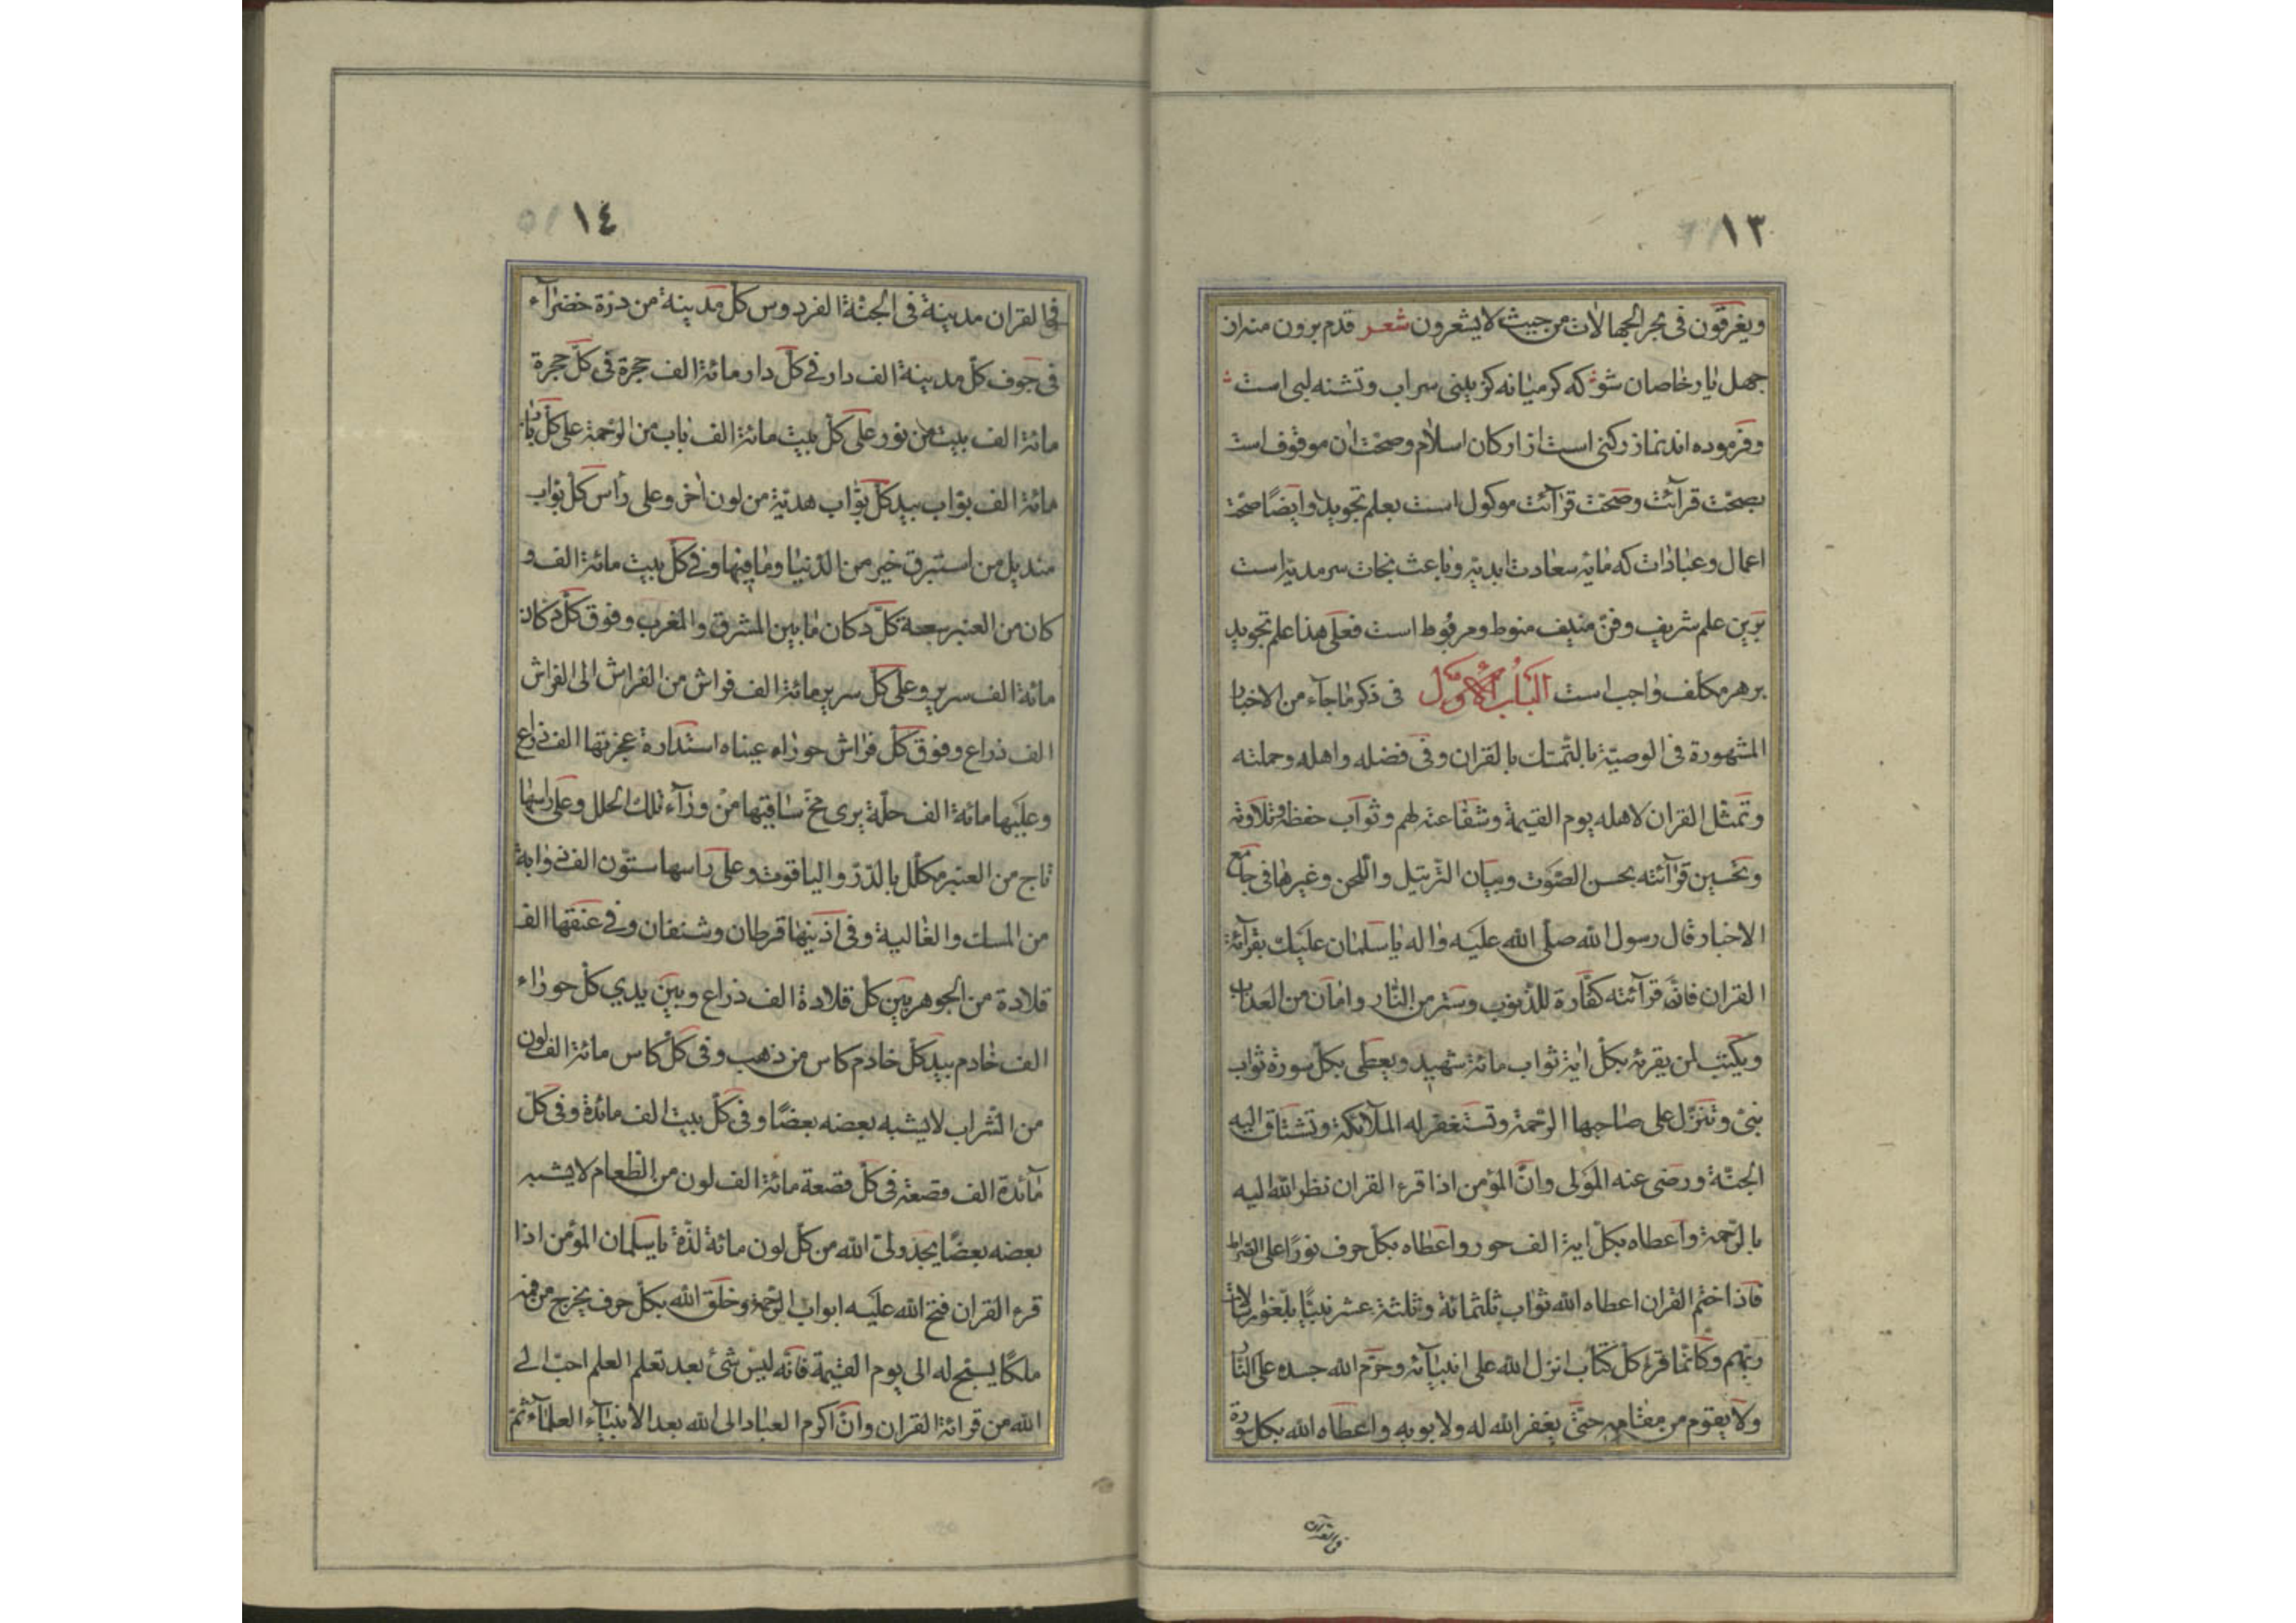 ١٣
ويغرقون في بحر الجهالات من حيث لا يشعرون شعر قدم برون منه از
جهل يا رخاصان شو که کر ميانه کزيني سراب وتشنه لبی است
وفرموده اند نماز رکنی است از ارکان اسلام وصحت ان موقوف است
بصحت قرآئت وصحت قرآئت موکول است بعلم تجويد وايضًا صحت
اعمال وعبادات که مايه سعادت ابديه وباعث نجات سرمديه است
برين علم شريف وفن منيف منوط ومربوط است فعلى هذا علم تجويد
برهر مکلف واجب است الباب الاول في ذكر ما جآء من الاخبار
المشهورة في الوصية بالتمسك بالقران وفي فضله واهله وحملته
وتمثل القران لاهله يوم القيمة وشفاعته لهم وثواب حفظه وتلاوته
وتحسين قرآئته بحسن الصوت وبيان الترتيل واللحن وغيرها في جامع
الاخبار قال رسول الله صلى الله عليه واله يا سلمان عليك بقرآئة
القران فانه قرآئته كفارة للذنوب وستر من النار وامان من العذاب
ويكتب لمن يقرئه بكل اية ثواب مائة شهيد ويعطى بكل سورة ثواب
نبي وتنزل على صاحبها الرحمة وتستغفر له الملآئكة وتشتاق اليه
الجنة ورضى عنه المولى وان المؤمن اذا قرء القران نظر الله اليه
بالرحمة واعطاه بكل اية الف حور واعطاه بكل حرف نورًا على الصراط
فاذا ختم القران اعطاه الله ثواب ثلثمائة وثلثة عشر نبيًا بلغوا رسالات
ربهم وكانما قرء كل كتاب انزل الله على انبيآئه وحرم الله جسده على النار
ولا يقوم من مقامه حتى يغفر الله له ولابويه واعطاه الله بكل سورة
في القران
١٤
في القران مدينة في الجنة الفردوس كل مدينة من درة خضرآء
في جوف كل مدينة الف دار في كل دار مائة الف حجرة في كل حجرة
مائة الف بيت من نور على كل بيت مائة الف باب من الرحمة على كل باب
مائة الف بواب بيد كل بواب هدية من لون اخر وعلى رأس كل بواب
منديل من استبرق خير من الدنيا وما فيها وفي كل بيت مائة الف د
كان من العنبر سعة كل دكان ما بين المشرق والمغرب وفوق كل دكان
مائة الف سرير وعلى كل سرير مائة الف فراش من الفراش الى الفراش
الف ذراع وفوق كل فراش حوراء عيناء استدارة عجزتها الف ذراع
وعليها مائة الف حلة يرى مخ ساقيها من ورآء تلك الحلل وعلى راسها
تاج من العنبر مكلل بالدر والياقوت وعلى راسها ستون الف ذوابة
من المسك والغالية وفي اذنيها قرطان وشنفان وفي عنقها الف
قلادة من الجوهر بين كل قلادة الف ذراع وبين يدي كل حوراء
الف خادم بيد كل خادم كاس من ذهب وفي كل كاس مائة الف لون
من الشراب لا يشبه بعضه بعضًا وفي كل بيت الف مائدة وفي كل
مآئدة الف قصعة في كل قصعة مائة الف لون من الطعام لا يشبه
بعضه بعضًا يجد ولي الله من كل لون مائة لذة يا سلمان المؤمن اذا
قرء القران فتح الله عليه ابواب الرحمة وخلق الله بكل حرف يخرج من فمه
ملكًا يسبح له الى يوم القيمة فانه ليس شئ بعد تعلم العلم احب الى
الله من قرائة القران وان اكرم العباد الى الله بعد الانبيآء العلمآء ثم